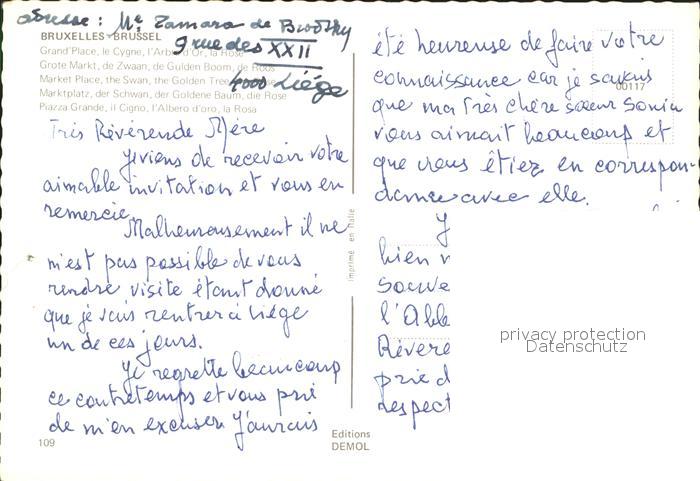 adresse : Me Tamara de
9 rue des XXII
4000 Liége
BRUXELLES-BRUSSEL
Grand'Place, le Cygne, l'Arbre d'Or, la Rose
Grote Markt, de Zwaan, de Gulden Boom, de Roos
Market Place, the Swan, the Golden Tree, Rose
Marktplatz, der Schwan, der Goldene Baum, die Rose
Piazza Grande, il Cigno, l'Albero d'oro, la Rosa
Très Révérende Mère
Je viens de recevoir votre
aimable invitation et vous en
remercie.
Malheureusement il ne
m'est pas possible de vous
rendre visite étant donné
que je vais rentrer à Liége
un de ces jours.
Je regrette beaucoup
ce contretemps et vous prie
de m'en excuser J'aurais
109
imprimé en Italie
Editions
DEMOL
été heureuse de faire votre
connaissance car je savais
00117
que ma très chère sœur Sonia
vous aimait beaucoup et
que vous êtiez en correspon-
dance avec elle.
J
bien
Souve
l'Abb
Révére
prie d
respect
privacy protection
Datenschutz